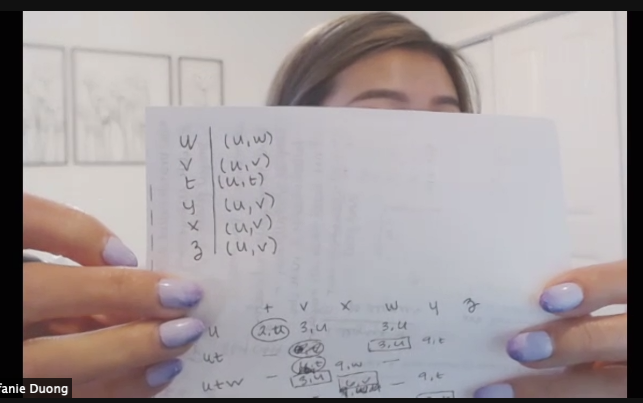 w | (u,w)
v | (u,v)
t | (u,t)
y | (u,v)
x | (u,v)
z | (u,v)
t v x w y z
u 2,u 3,u 3,u
ut 3,u 9,t
utw – 3,u 9,w – 9,t
fanie Duong